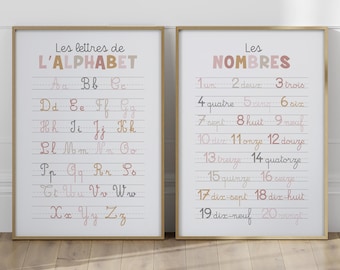 Les lettres de
L'ALPHABET
Aa Bb Cc
Dd Ee Ff Gg
Hh Ii Jj Kk
Ll Mm Nn Oo
Pp Qq Rr Ss
Tt Uu Vv Ww
Xx Yy Zz
Les
NOMBRES
1 un 2 deux 3 trois
4 quatre 5 cinq 6 six
7 sept 8 huit 9 neuf
10 dix 11 onze 12 douze
13 treize 14 quatorze
15 quinze 16 seize
17 dix-sept 18 dix-huit
19 dix-neuf 20 vingt